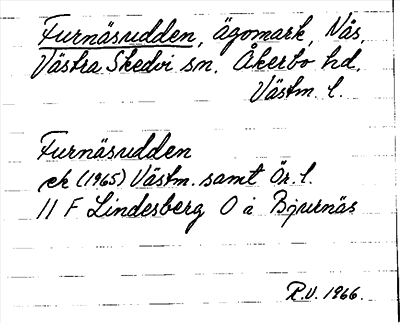 Furnäsudden, ägomark, Nås,
Västra Skedvi sn. Åkerbo hd.
Västm. l.
Furnäsudden
ek (1965) Västm. samt Ör. l.
11 F Lindesberg O å Bjurnäs
R.V. 1966.